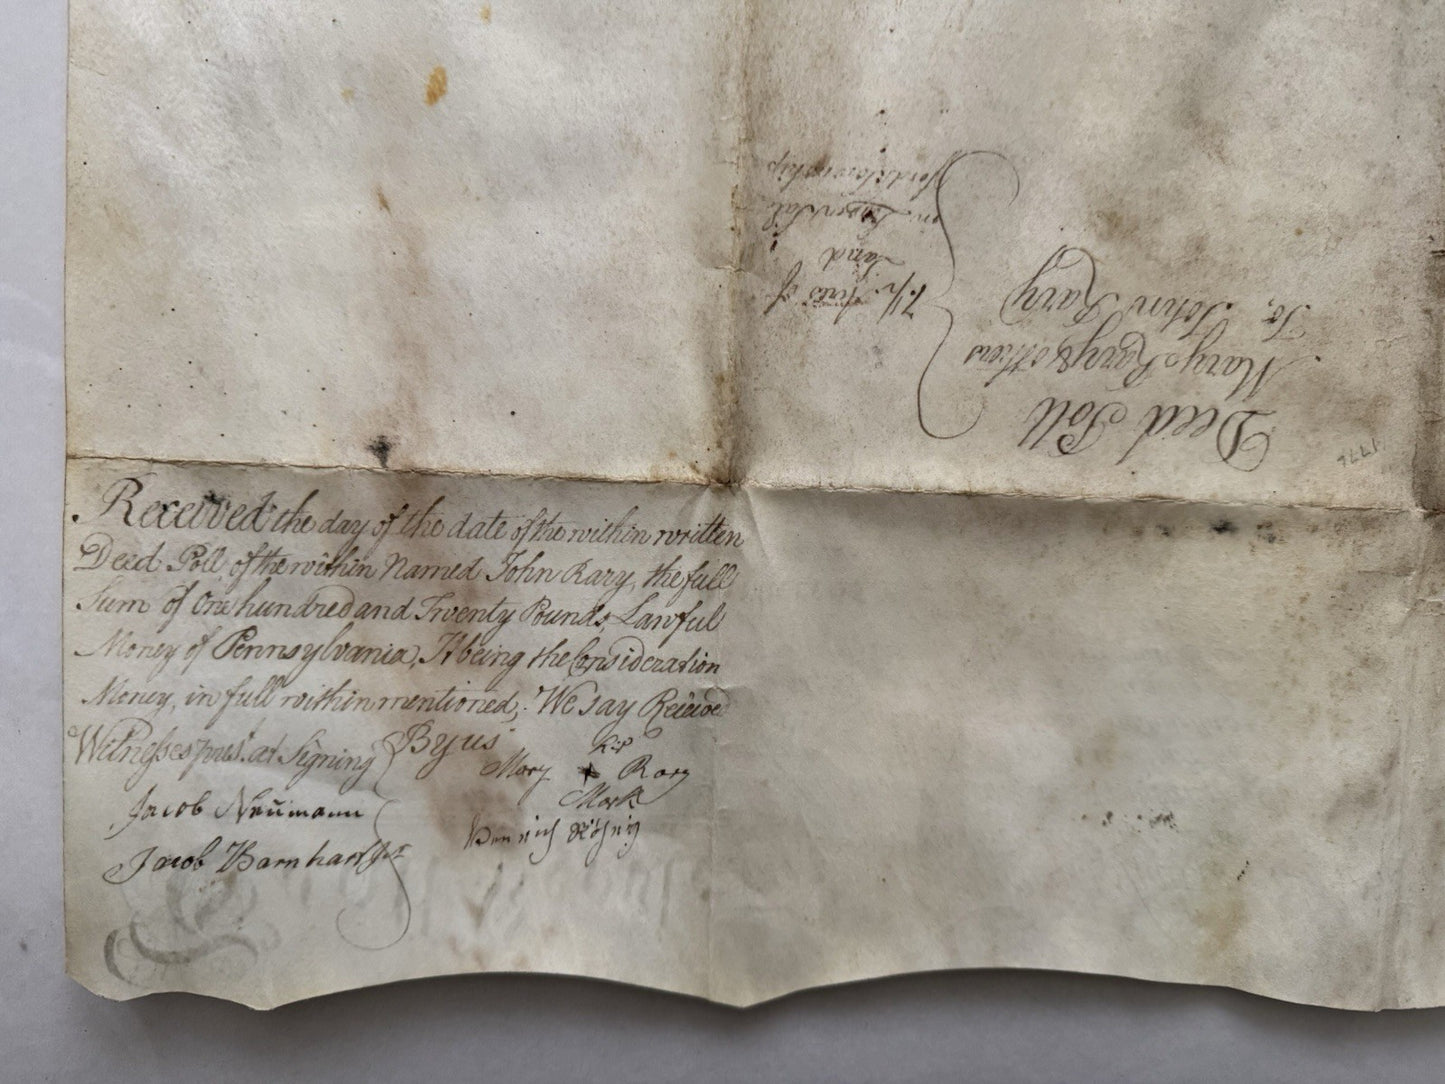 Received the day of the date of the within written
Deed Poll of the within Named John Rary, the full
Sum of One hundred and Twenty Pounds, Lawful
Money of Pennsylvania, It being the Consideration
Money, in full within mentioned, We say Received
Witnesses pres.t at Signing
By us
her
Mary + Rary
Mark
Jacob Neümann
Jacob Barnhart
Deed Poll
Mary Rary & others
To, John Rary
Acres of
Land
in
township
1776